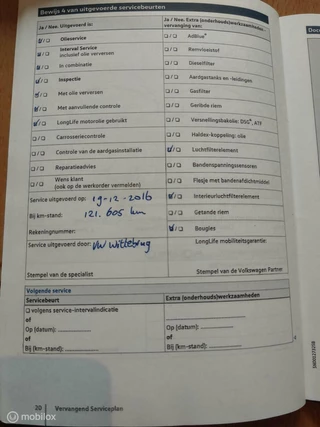 Bewijs 4 van uitgevoerde servicebeurten
Ja / Nee. Uitgevoerd is:
Olieservice
Interval Service
inclusief olie verversen
In combinatie
Inspectie
Met olie verversen
Met aanvullende controle
LongLife motorolie gebruikt
Carrosseriecontrole
Controle van de aardgasinstallatie
Reparatieadvies
Wens klant
(ook op de werkorder vermelden)
Service uitgevoerd op: 19-12-2016
Bij km-stand: 121.605 km
Rekeningnummer:
Service uitgevoerd door: VW Wittebrug
Stempel van de specialist
Ja / Nee. Extra (onderhouds)werkzaamheden,
vervanging van:
AdBlue®
Remvloeistof
Dieselfilter
Aardgastanks en -leidingen
Gasfilter
Geribde riem
Versnellingsbakolie: DSG®, ATF
Haldex-koppeling: olie
Luchtfilterelement
Bandenspanningssensoren
Flesje met bandenafdichtmiddel
Interieurluchtfilterelement
Getande riem
Bougies
LongLife mobiliteitsgarantie:
Stempel van de Volkswagen Partner
Volgende service
Servicebeurt
volgens service-intervalindicatie
of
Op (datum):
of
Bij (km-stand):
Extra (onderhouds)werkzaamheden
Op (datum):
of
Bij (km-stand):
20 Vervangend Serviceplan
mobilox